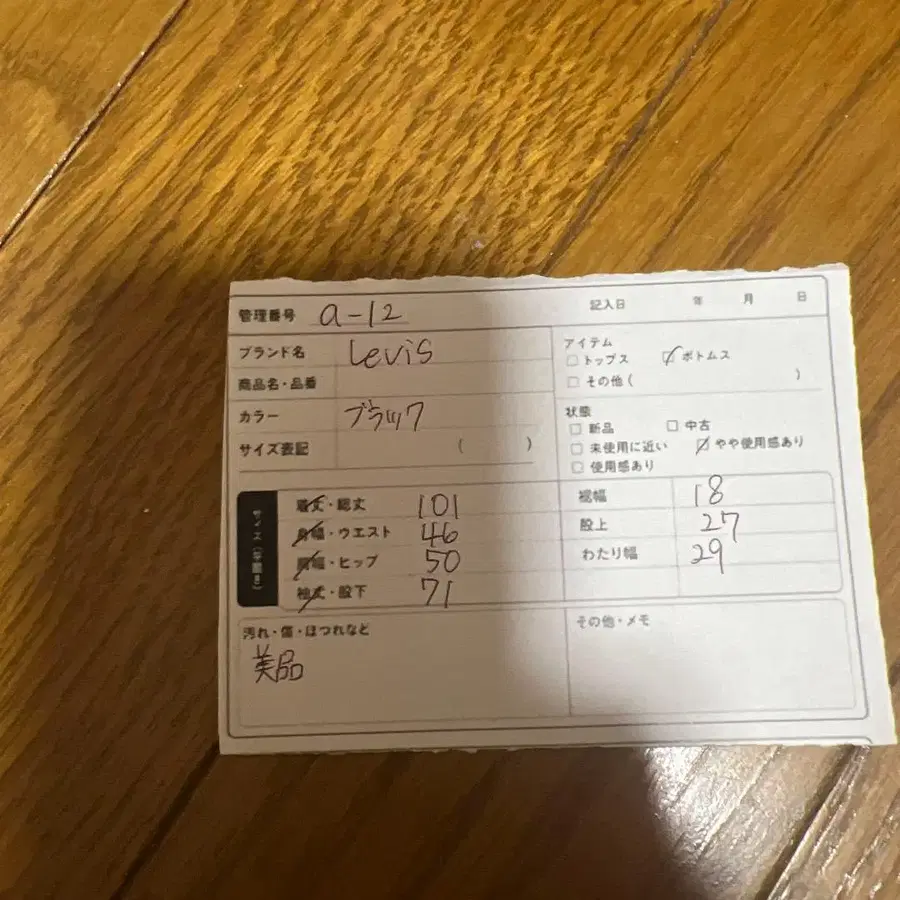 管理番号 a-12 記入日 年 月 日
ブランド名 Levis
商品名・品番
カラー ブラック
サイズ表記 ( )
アイテム
□ トップス ☑ ボトムス
□ その他 ( )
状態
□ 新品 □ 中古
□ 未使用に近い ☑ やや使用感あり
□ 使用感あり
着丈・総丈 101
身幅・ウエスト 46
肩幅・ヒップ 50
袖丈・股下 71
裾幅 18
股上 27
わたり幅 29
汚れ・傷・ほつれなど
美品
その他・メモ